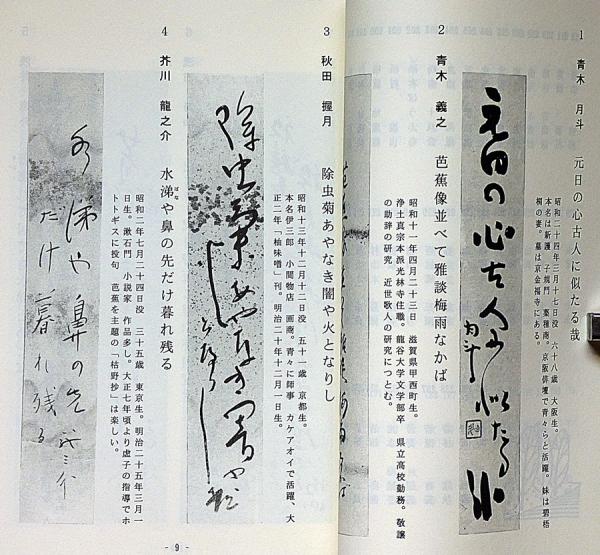 1 青木 月斗 元日の心古人に似たる哉
昭和二十四年三月十七日没 六十八歳 大阪生。
本名は新護 子規門 薬種商。京阪俳壇で青々らと活躍。妹は碧梧
桐の妻。墓は京金福寺にある。
元日の心古人に似たる哉
月斗
2 青木 義之 芭蕉像並べて雅談梅雨なかば
昭和十一年四月二十三日 滋賀県甲西町生。
浄土真宗本派光林寺住職。龍谷大学文学部卒 県立高校勤務。敬譲
の助辞の研究 近世歌人の研究につとむ。
3 秋田 握月 除虫菊あやなき闇や火となりし
昭和十三年十二月十二日没 五十一歳 京都生。
本名伊三郎 小間物店 画商。青々に師事 カケアオイで活躍、大
正二年「柚味噌」刊。明治二十年十二月一日生。
除虫菊あやなき闇や火
となりし
4 芥川 龍之介 水涕や鼻の先だけ暮れ残る
ばな
昭和二年七月二十四日没 三十五歳 東京生。明治二十五年三月一
日生。漱石門 小説家 作品多し。大正七年頃より虚子の指導でホ
トトギスに投句 芭蕉を主題の「枯野抄」は楽しい。
水涕や鼻の先
だけ暮れ残る
- 9 -